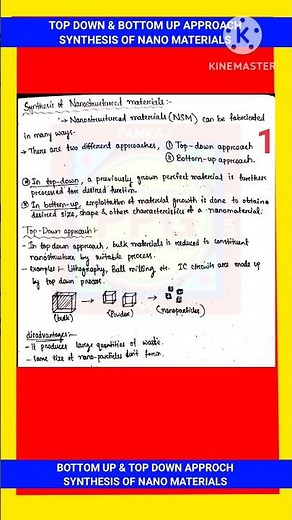 TOP DOWN & BOTTOM UP APPROACH
SYNTHESIS OF NANO MATERIALS
KINEMASTER
1
Synthesis of Nanostructured materials :-
→ Nanostructured materials (NSM) can be fabricated
in many ways.
→ There are two different approaches, ① Top-down approach
② Bottom-up approach.
① In top-down, a previously grown perfect material is further
processed for desired function.
② In bottom-up, exploitation of material growth is done to obtain a
desired size, shape & other characteristics of a nanomaterial.
Top-Down approach:-
- In top down approach, bulk materials is reduced to constituent
nanostructure by suitable process.
- Examples :- Lithography, Ball milling etc. IC circuits are made up
by top down process.
(bulk) (Powder) (nanoparticles)
disadvantages:-
- It produces large quantities of waste.
- Same size of nano-particles don't form.
BOTTOM UP & TOP DOWN APPROCH
SYNTHESIS OF NANO MATERIALS